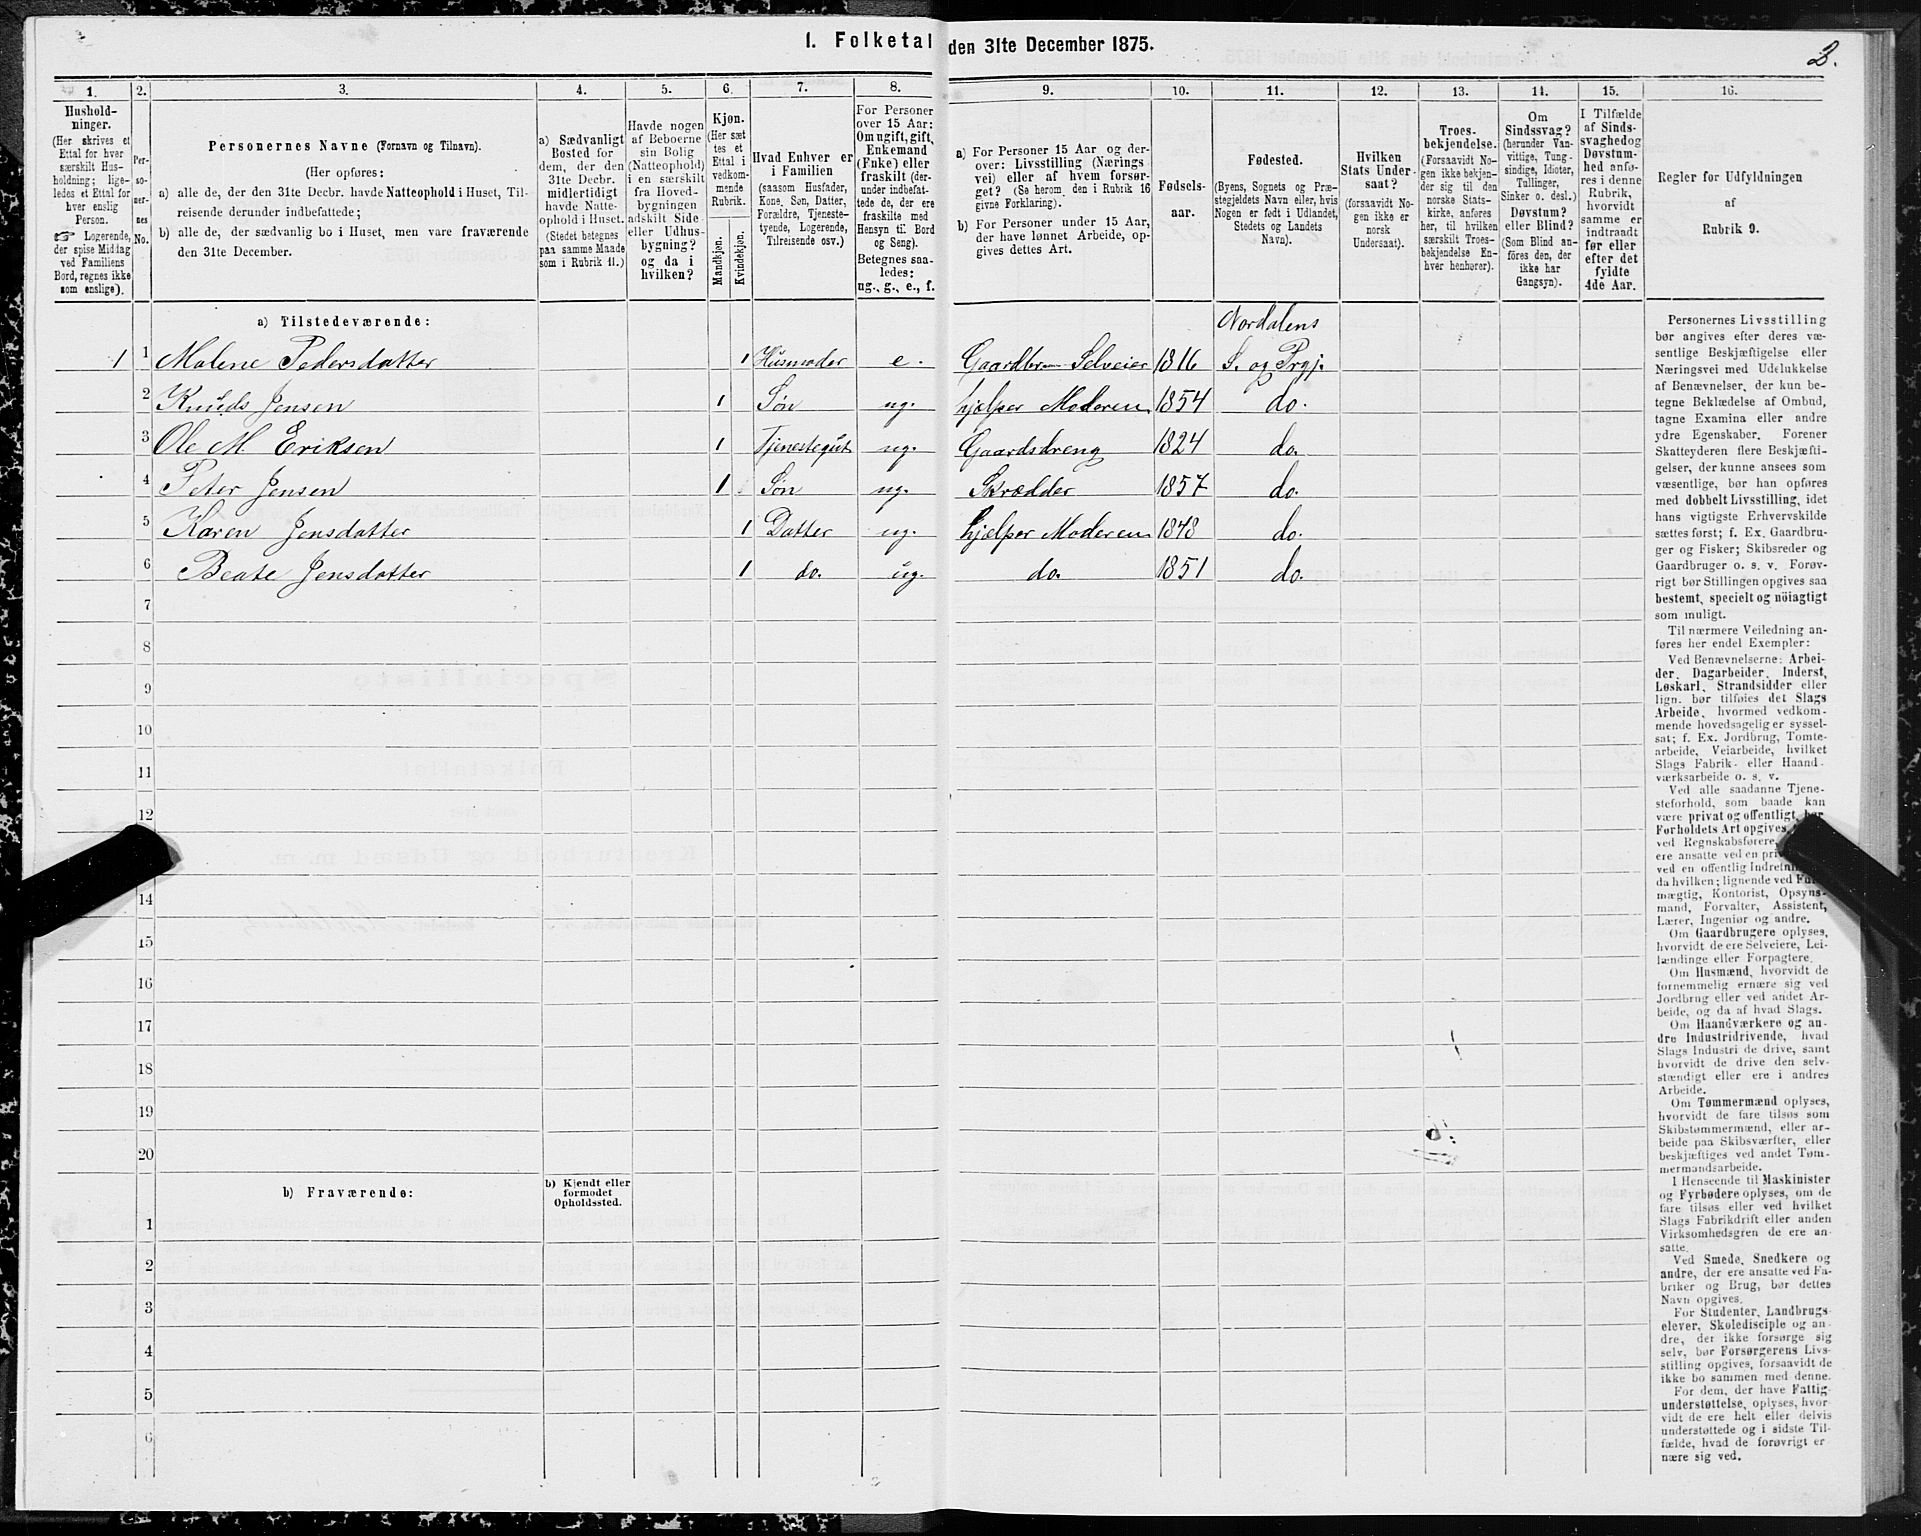 1. Folketal den 31te December 1875.
2.
1.
2.
3.
4.
5.
6.
7.
8.
9.
10.
11.
12.
13.
14.
15.
16.
Hushold-
ninger.
(Her skrives et
Ettal for hver
særskilt Hus-
holdning; lige-
ledes et Ettal for
hver enslig
Person.
☞ Logerende,
der spise Middag
ved Familiens
Bord, regnes ikke
som enslige).
Per-
so-
ner-
nes
No.
Personernes Navne (Fornavn og Tilnavn).
(Her opføres:
a) alle de, der den 31te Decbr. havde Natteophold i Huset, Til-
reisende derunder indbefattede;
b) alle de, der sædvanlig bo i Huset, men vare fraværende
den 31te December.
a) Sædvanligt
Bosted for
dem, der den
31te Decbr.
midlertidigt
havde Natte-
ophold i Huset.
(Stedet betegnes
paa samme Maade
som i Rubrik 11.)
Havde nogen
af Beboerne
sin Bolig
(Natteophold)
i en særskilt
fra Hoved-
bygningen
adskilt Side-
eller Udhus-
bygning?
og da i
hvilken?
Kjøn.
(Her sæt
tes et
Ettal i
vedkom-
mende
Rubrik.
Mandkjøn.
Kvindekjøn.
Hvad Enhver er
i Familien
(saasom Husfader,
Kone, Søn, Datter,
Forældre, Tjeneste-
tyende, Logerende,
Tilreisende osv.)
For Personer
over 15 Aar:
Om ugift, gift,
Enkemand
(Enke) eller
fraskilt (der-
under indbefat-
tede de, der ere
fraskilte med
Hensyn til Bord
og Seng).
Betegnes saa-
ledes:
ug., g., e., f.
a) For Personer 15 Aar og der-
over: Livsstilling (Nærings
vei) eller af hvem forsør-
get? (Se herom den i Rubrik 16
givne Forklaring).
b) For Personer under 15 Aar,
der have lønnet Arbeide, op-
gives dettes Art.
Fødsels-
aar.
Fødested.
(Byens, Sognets og Præ-
stegjeldets Navn eller, hvis
Nogen er født i Udlandet,
Stedets og Landets
Navn).
Hvilken
Stats Under-
saat?
(forsaavidt No-
gen ikke er
norsk
Undersaat).
Troes-
bekjendelse.
(Forsaavidt No-
gen ikke bekjen-
der sig til den
norske Stats-
kirke, anføres
her, til hvilken
særskilt Troes-
bekjendelse En-
hver henhører).
Om
Sindssvag?
(herunder Van-
vittige, Tung-
sindige, Idioter,
Tullinger,
Sinker o. desl.)
Døvstum?
eller Blind?
(Som Blind an-
føres den, der
ikke har
Gangsyn).
I Tilfælde
af Sinds-
svaghed og
Døvstum-
hed anfø-
res i denne
Rubrik,
hvorvidt
samme er
indtraadt
før eller
efter det
fyldte
4de Aar.
Regler for Udfyldningen
af
Rubrik 9.
a) Tilstedeværende:
Nordalens
1 1 Malene Pedersdatter 1 Husmoder e. Gaardbr. Selveier 1816 S. og Prgj.
2 Knuds Jensen 1 Søn ug. hjælper Moderen 1854 do.
3 Ole M Eriksen 1 Tjenestegut ug. Gaardsdreng 1824 do.
4 Peter Jensen 1 Søn ug. Skrædder 1857 do.
5 Karen Jensdatter 1 Datter ug. hjælper Moderen 1848 do.
6 Beate Jensdatter 1 do. ug. do. 1851 do.
7
8
9
10
11
12
14
15
16
17
18
19
20
b) Fraværende:
b) Kjendt eller
formodet
Opholdssted.
1
2
3
4
5
6
Personernes Livsstilling
bør angives efter deres væ-
sentlige Beskjæftigelse eller
Næringsvei med Udelukkelse
af Benævnelser, der kun be-
tegne Beklædelse af Ombud,
tagne Examina eller andre
ydre Egenskaber. Forener
Skatteyderen flere Beskjæfti-
gelser, der kunne ansees som
væsentlige, bør han opføres
med dobbelt Livsstilling, idet
hans vigtigste Erhvervskilde
sættes først; f. Ex. Gaardbru-
ger og Fisker; Skibsreder og
Gaardbruger o. s. v. Forøv-
rigt bør Stillingen opgives saa
bestemt, specielt og nöiagtigt
som muligt.
Til nærmere Veiledning an-
føres her endel Exempler:
Ved Benævnelserne: Arbei-
der, Dagarbeider, Inderst,
Løskarl, Strandsidder eller
lign. bør tilføies det Slags
Arbeide, hvormed vedkom-
mende hovedsagelig er syssel-
sat; f. Ex. Jordbrug, Tomte-
arbeide, Veiarbeide, hvilket
Slags Fabrik- eller Haand-
værksarbeide o. s. v.
Ved alle saadanne Tjene-
steforhold, som baade kan
være privat og offentligt, bør
Forholdets Art opgives,
ved Regnskabsførere,
ere ansatte ved en
ved en offentlig
da hvilken; lignende ved
mægtig, Kontorist, Opsyns-
mand, Forvalter, Assistent,
Lærer, Ingeniør og andre.
Om Gaardbrugere oplyses,
hvorvidt de ere Selveiere, Lei-
lændinge eller Forpagtere.
Om Husmænd, hvorvidt de
fornemmelig ernære sig ved
Jordbrug eller ved andet Ar-
beide, og da af hvad Slags.
Om Haandværkere og an-
dre Industridrivende, hvad
Slags Industri de drive, samt
hvorvidt de drive den selv-
stændigt eller ere i andres
Arbeide.
Om Tømmermænd oplyses,
hvorvidt de fare tilsøs som
Skibstømmermænd, eller ar-
beide paa Skibsværfter, eller
beskjæftiges ved andet Tøm-
mermandsarbeide.
I Henseende til Maskinister
og Fyrbødere oplyses, om de
fare tilsøs eller ved hvilket
Slags Fabrikdrift eller anden
Virksomhedsgren de ere an-
satte.
Ved Smede, Snedkere og
andre, der ere ansatte ved Fa-
briker og Brug, bør dettes
Navn opgives.
For Studenter, Landbrugs-
elever, Skoledisciple og an-
dre, der ikke forsørge sig
selv, bør Forsørgerens Livs-
stilling opgives, forsaavidt de
ikke bo sammen med denne.
For dem, der have Fattig-
understøttelse, oplyses, hvor-
vidt de ere helt eller delvis
understøttede og i sidste Til-
fælde, hvad de forøvrigt er-
nære sig ved.